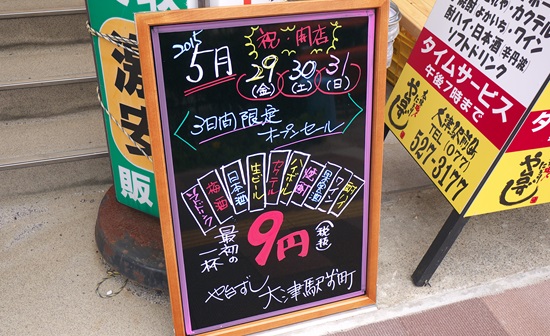 2015
祝 開店
5月 29 30 31
(金) (土) (日)
3日間限定
オープンセール
ソフトドリンク
梅酒
日本酒
生ビール
カクテル
ハイボール
焼酎
果実酒
ワイン
酎ハイ
最初の一杯
9円
(税抜)
や台ずし 大津駅前町
販
酎ハイ・日本酒
ソフトドリンク
タイムサービス
午後7時まで
大津駅前店
TEL(077)
527-3177